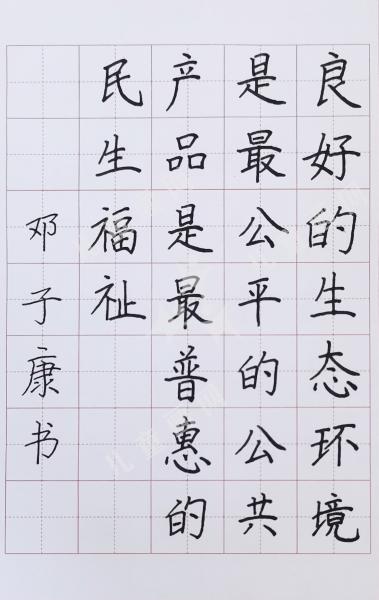 良好的生态环境
是最公平的公共
产品是最普惠的
民生福祉
邓子康书